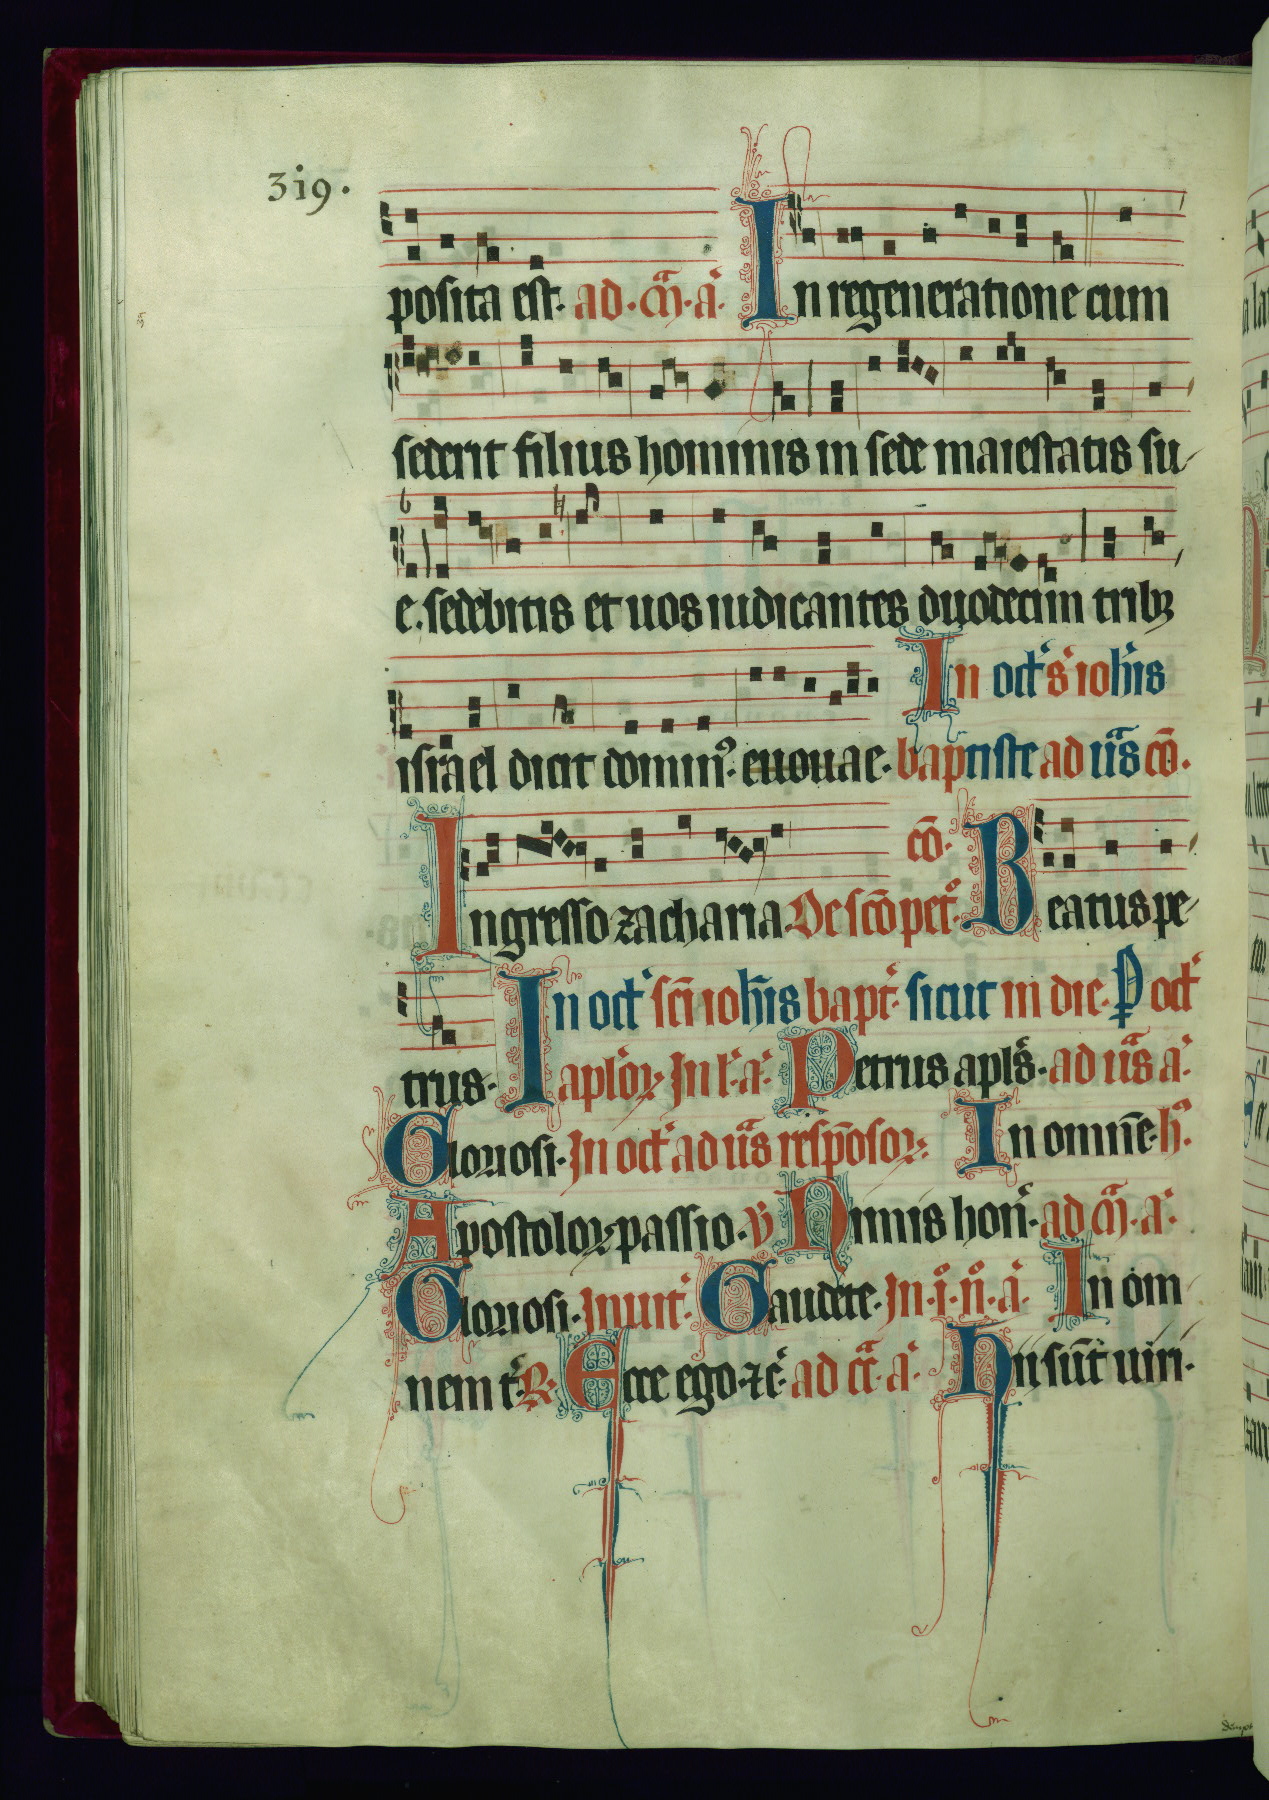 3i9.
posita est. ad. m̄. a. In regeneratione cum
sederit filius hominis in sede maiestatis su
e. sedebitis et uos iudicantes duodecim tribꝫ
In oct' s' ioh'is
israel dicit domin⁹. euouae. baptiste ad ūs cō.
cō.
Ingresso zacharia. De scō pet'. Beatus pe
In oct' sci ioh'is bapt'. sicut in die. P oct'
trus. aplōꝝ. In l'. a'. Petrus apls. ad ūs a'.
Gloriosi. In oct' ad ūs resp̄osoꝝ. In omnē. h'.
Apostoloꝝ passio. ꝟ Nimis hon'. ad m̄. a'.
Gloriosi. Inuit'. Gaudete. In. i. n. a'. In om
nem t'. ℟. Ecce ego. ⁊c̄. ad . a'. Hii sūt uiri.